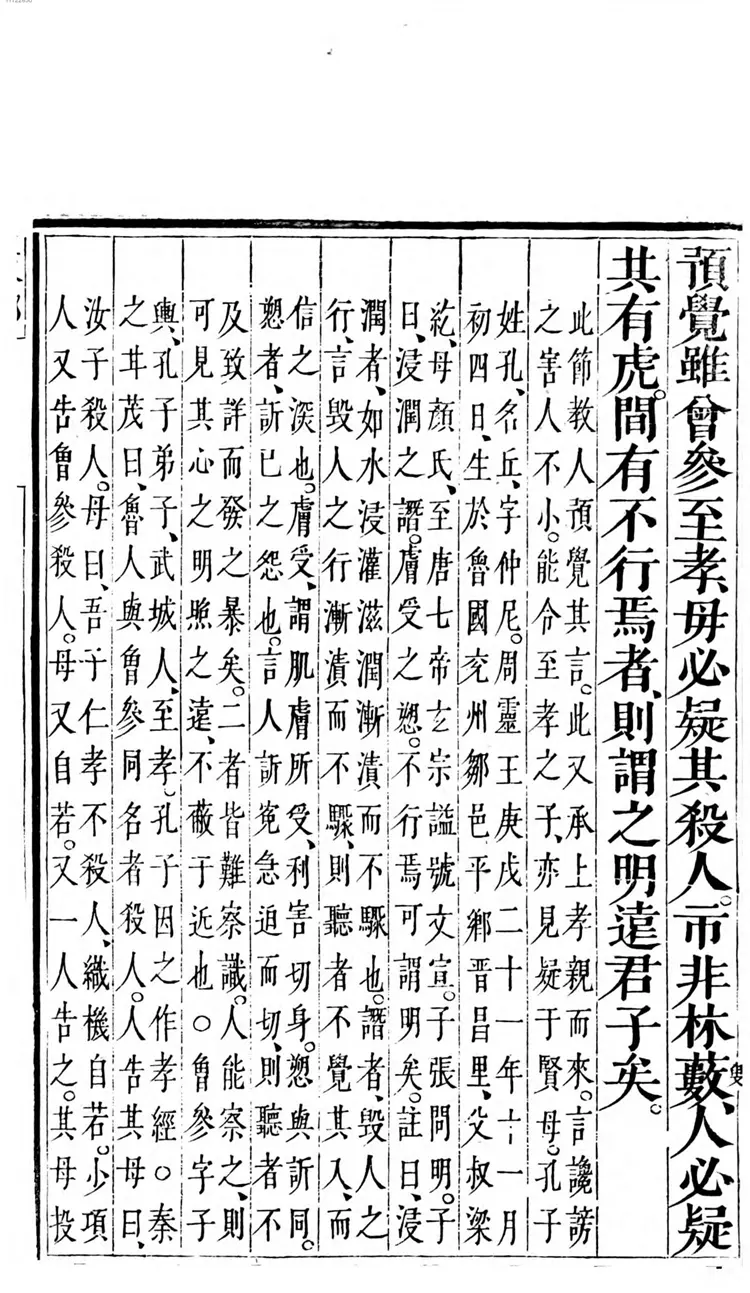 預覺雖曾參至孝、母必疑其殺人。市非林藪、人必疑
叟
共有虎。間有不行焉者、則謂之明遠君子矣。
此節教人預覺其言。此又承上孝親而來。言讒謗
之害人不小。能令至孝之子、亦見疑于賢母。孔子
姓孔、名丘、字仲尼。周靈王庚戌二十一年十一月
初四日、生於魯國兗州鄒邑平鄉晉昌里、父叔梁
紇、母顏氏、至唐七帝玄宗謚號文宣。子張問明。子
曰、浸潤之譖。膚受之愬。不行焉可謂明矣。註曰、浸
潤者、如水浸灌滋潤漸漬而不驟也。譖者、毀人之
行、言毀人之行漸漬而不驟、則聽者不覺其入、而
信之深也。膚受、謂肌膚所受、利害切身。愬與訴同。
愬者、訴已之怨也。言人訴冤急迫而切、則聽者不
及致詳而發之暴矣。二者皆難察識。人能察之、則
可見其心之明照之遠、不蔽于近也○魯參字子
輿、孔子弟子、武城人、至孝。孔子因之作孝經○秦
之甘茂曰、魯人與魯參同名者殺人。人告其母曰、
汝子殺人。母曰、吾子仁孝不殺人、織機自若。少項
人又告魯參殺人。母又自若。又一人告之。其母投